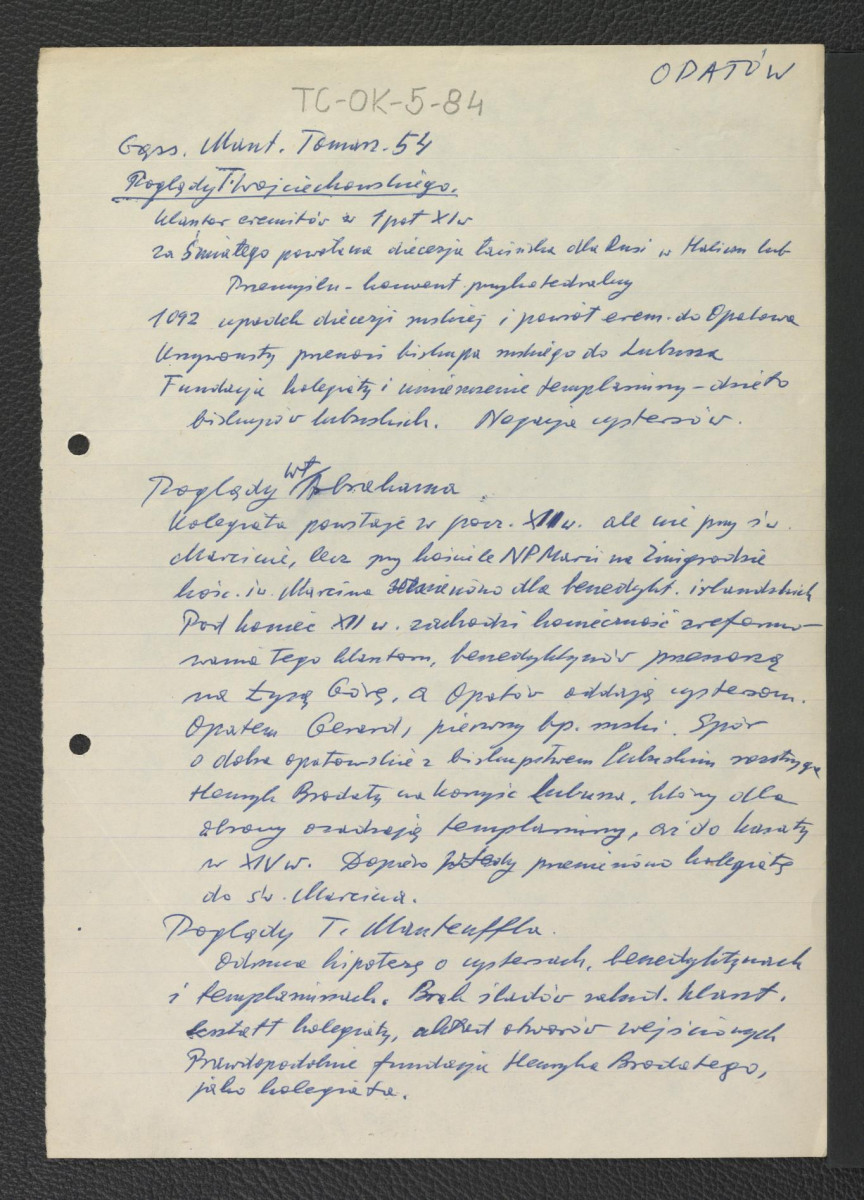 OPATÓW
TC-OK-5-84
Gąss. Mant. Tomasz. 54
Poglądy T. Wojciechowskiego.
klasztor eremitów w 1 poł XI w
za Śmiałego powołana diecezja łacińska dla Rusi w Haliczu lub
Przemyślu – konwent przykatedralny
1092 upadek diecezji ruskiej i powrót erem. do Opatowa
Krzywousty przenosi biskupa ruskiego do Lubusza
Fundacja kolegiaty i umieszczenie templariuszy – dzieło
biskupów lubuskich. Negacja cystersów.
Poglądy Wł Abrahama
Kolegiata powstaje w pocz. XII w. ale nie przy św.
Marcinie, lecz przy kościele NP Marii na Żmigrodzie
kośc. św. Marcina dla benedykt. irlandzkich
Pod koniec XII w. zachodzi konieczność zreformo-
wania tego klasztoru, benedyktynów przenoszą
na Łysą Górę, a Opatów oddają cystersom.
Opatem Gerard, pierwszy bp. ruski. Spór
o dobra opatowskie z biskupstwem lubuskim rozstrzyga
Henryk Brodaty na korzyść Lubusza, który dla
obrony osadzają templariuszy, aż do kasaty
w XIV w. Dopiero wtedy przeniesiono kolegiatę
do św. Marcina.
Poglądy T. Manteuffla.
Odrzuca hipotezę o cystersach, benedyktynach
i templariuszach. Brak śladów zabud. klaszt.
kształt kolegiaty, układ otworów wejściowych
Prawdopodobnie fundacja Henryka Brodatego,
jako kolegiata.